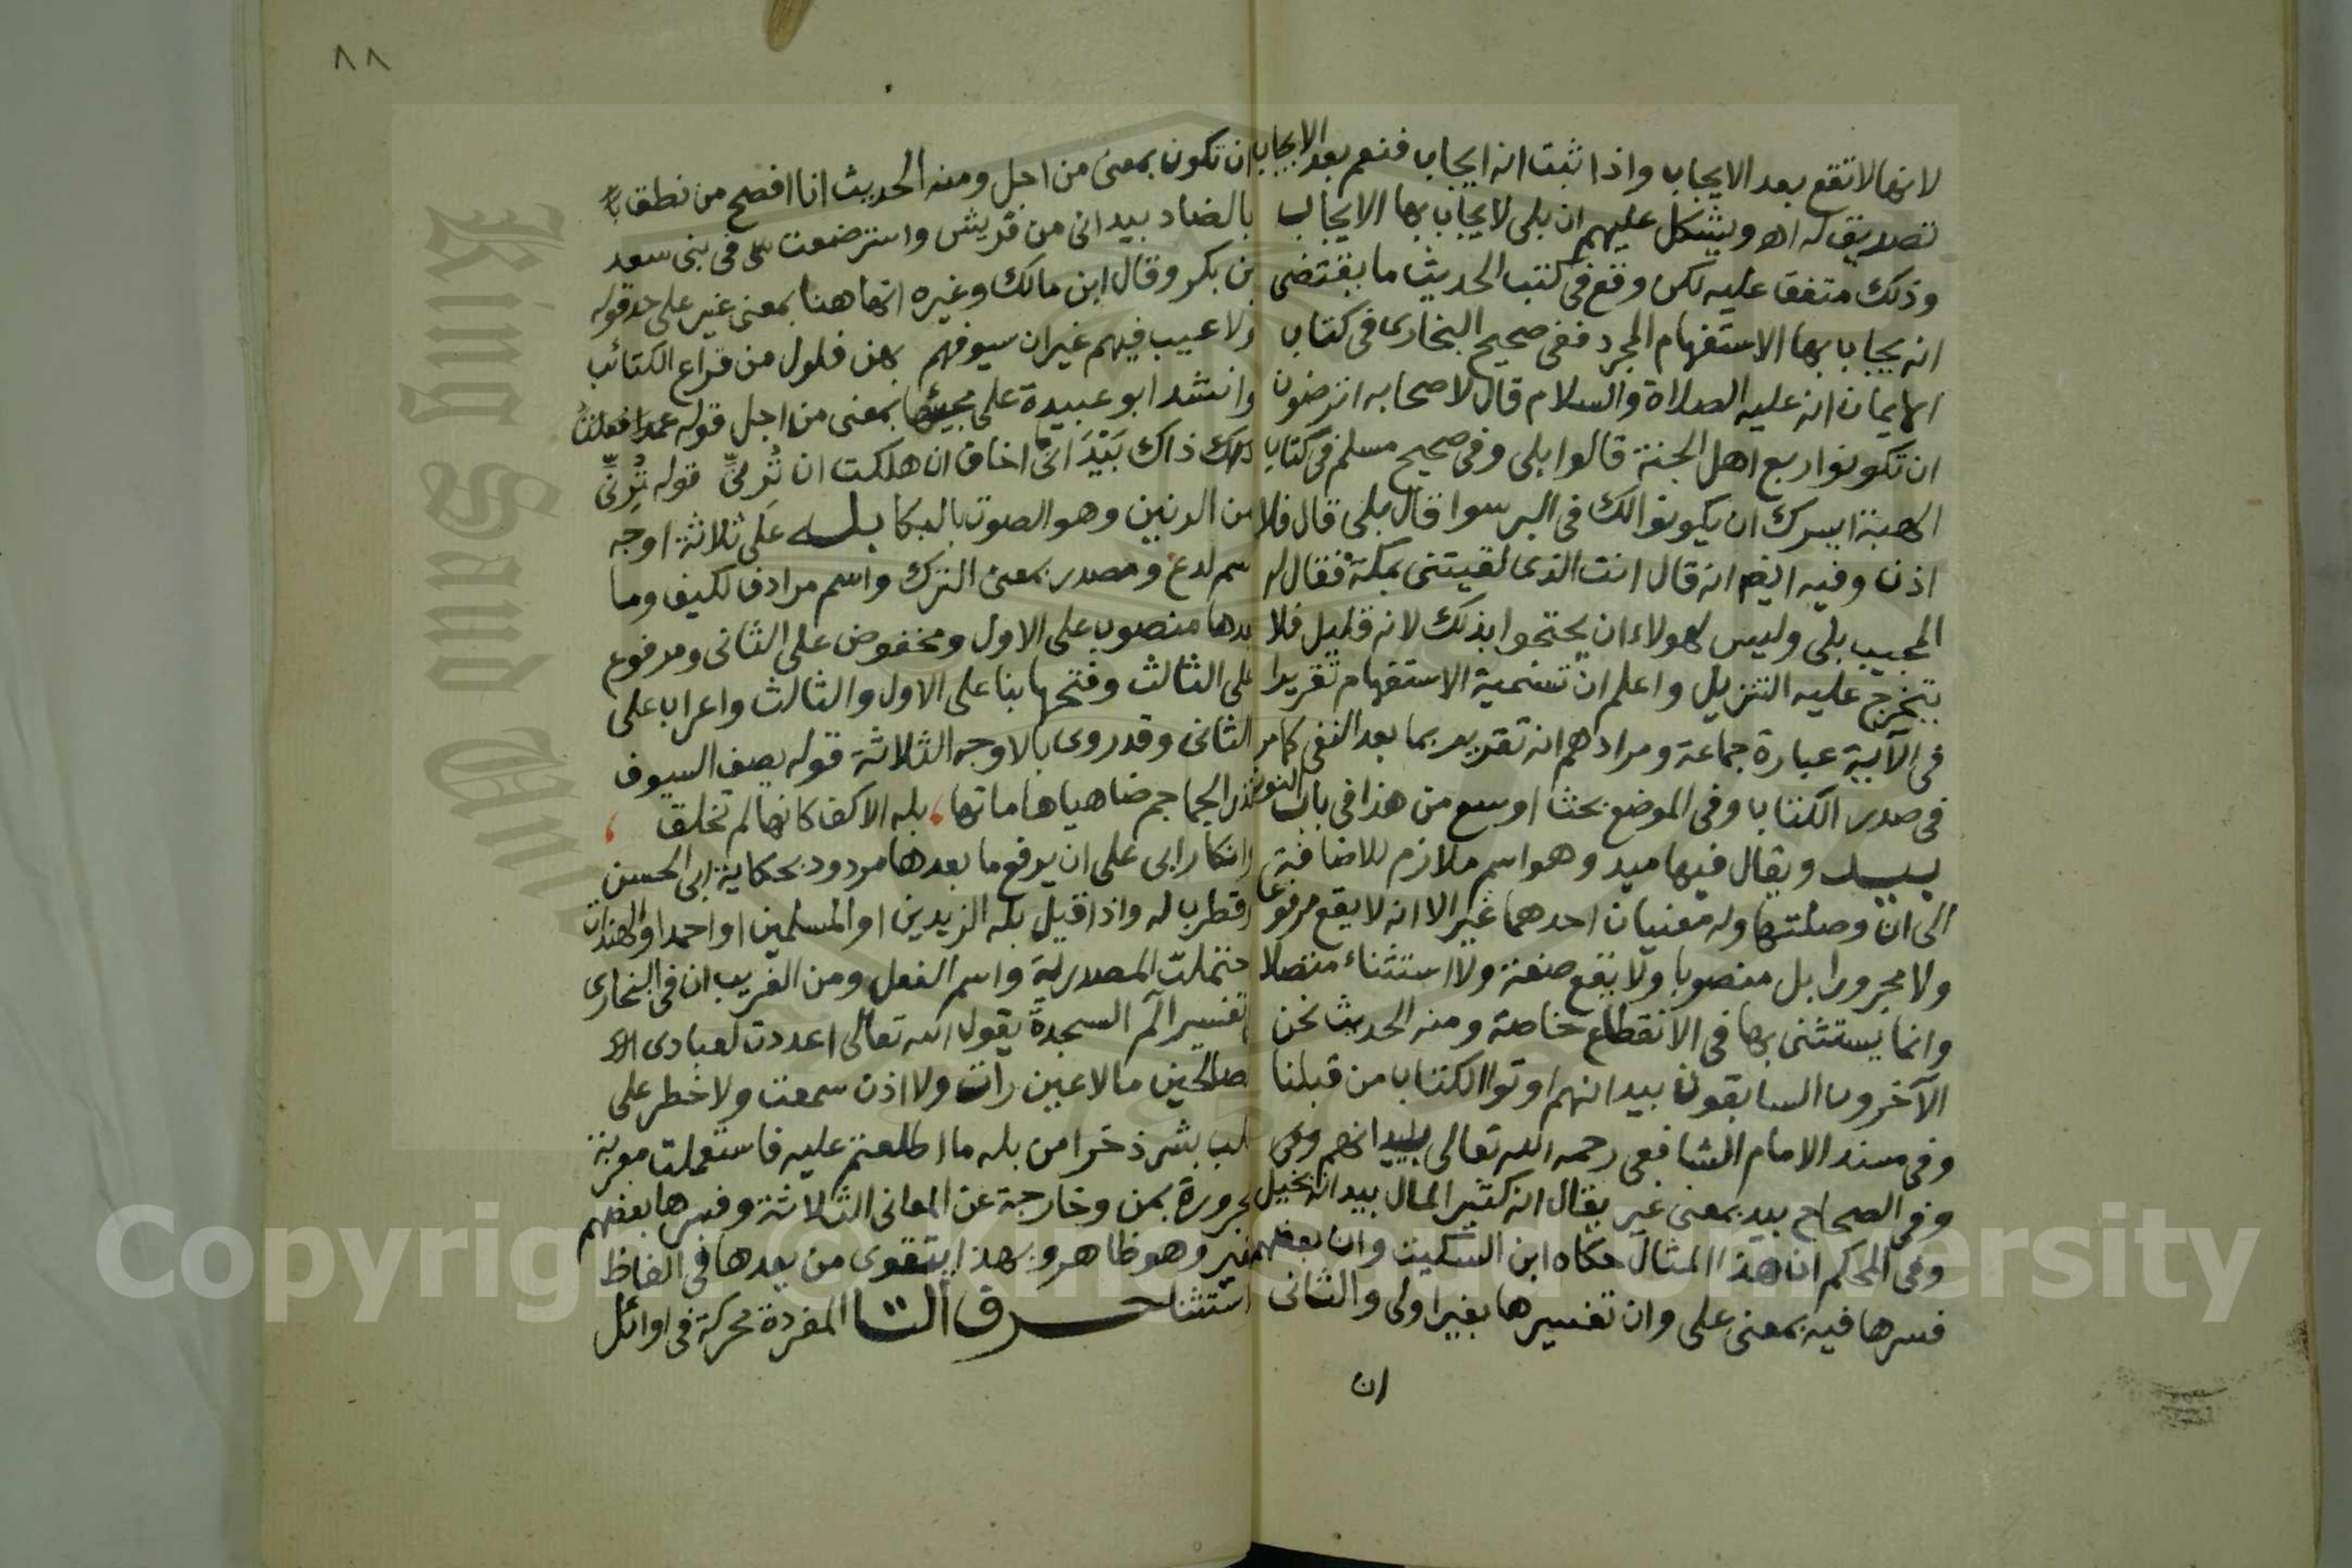 لانها لا تقع بعد الايجاب واذا ثبت انه ايجاب فنعم بعد الايجاب
تصديق له اه ويشكل عليهم ان بلى لا يجاب بها الايجاب
وذلك متفق عليه لكن وقع فى كتب الحديث ما يقتضى
انه يجاب بها الاستفهام المجرد ففى صحيح البخارى فى كتاب
الايمان انه عليه الصلاة والسلام قال لاصحابه اترضون
ان تكونوا ربع اهل الجنة قالوا بلى وفى صحيح مسلم فى كتاب
الهبة ايسرك ان يكونوا لك فى البر سوا قال بلى قال فلا
اذن وفيه ايضا انه قال انت الذى لقيتنى بمكة فقال له
المجيب بلى وليس لهولاء ان يحتجوا بذلك لانه قليل فلا
يتخرج عليه التنزيل واعلم ان تسمية الاستفهام تقريرا
فى الآية عبارة جماعة ومرادهم انه تقرير بما بعد النفى كما مر
فى صدر الكتاب وفى الموضع بحث اوسع من هذا فى باب النون
بيد ويقال فيها ميد وهو اسم ملازم للاضافة
الى ان وصلتها وله معنيان احدهما غير الا انه لا يقع مرفوعا
ولا مجرورا بل منصوبا ولا يقع صفة ولا استثناء متصلا
وانما يستثنى بها فى الانقطاع خاصة ومنه الحديث نحن
الآخرون السابقون بيد انهم اوتوا الكتاب من قبلنا
وفى مسند الامام الشافعى رحمه الله تعالى بايد انهم وفى
وفى الصحاح بيد بمعنى غير يقال انه كثير المال بيد انه بخيل
وفى المحكم ان هذا المثال حكاه ابن السكيت وان بعضهم
فسرها فيه بمعنى على وان تفسيرها بغير اولى والثانى
ان
٨٨
ان تكون بمعنى من اجل ومنه الحديث انا افصح من نطق
بالضاد بيد انى من قريش واسترضعت فى بنى سعد
بن بكر وقال ابن مالك وغيره انها هنا بمعنى غير على حد قوله
ولا عيب فيهم غير ان سيوفهم بهن فلول من قراع الكتائب
وانشد ابو عبيدة على مجيئها بمعنى من اجل قوله عمدا فعلت
ذاك بَيْدَ انى اخاف ان هلكت ان تُرِنِّى قوله تُرِنِّى
من الرنين وهو الصوت بالبكا بله على ثلاثة اوجه
اسم لدع ومصدر بمعنى الترك واسم مرادف لكيف وما
بعدها منصوب على الاول ومخفوض على الثانى ومرفوع
على الثالث وفتحها بنا على الاول والثالث واعراب على
الثانى وقد روى بالاوجه الثلاثة قوله يصف السيوف
تذر الجماجم ضاحيا هاماتها، بله الاكف كانها لم تخلق ،
وانكار ابى على ان يرفع ما بعدها مردود بحكاية ابى الحسن
وقطرب له واذا قيل بله الزيدين او المسلمين او احمد او الهندات
احتملت المصدرية واسم الفعل ومن الغريب ان فى البخارى
فى تفسير آلم السجدة يقول الله تعالى اعددت لعبادى
الصالحين ما لا عين رات ولا اذن سمعت ولا خطر على
قلب بشر ذخرا من بله ما اطلعتم عليه فاستعملت معربة
مجرورة بمن وخارجة عن المعانى الثلاثة وفسرها بعضهم
بغير وهو ظاهر وبهذا يتقوى من يعدها فى الفاظ
الاستثنا حرف التا المفردة محركة فى اوائل